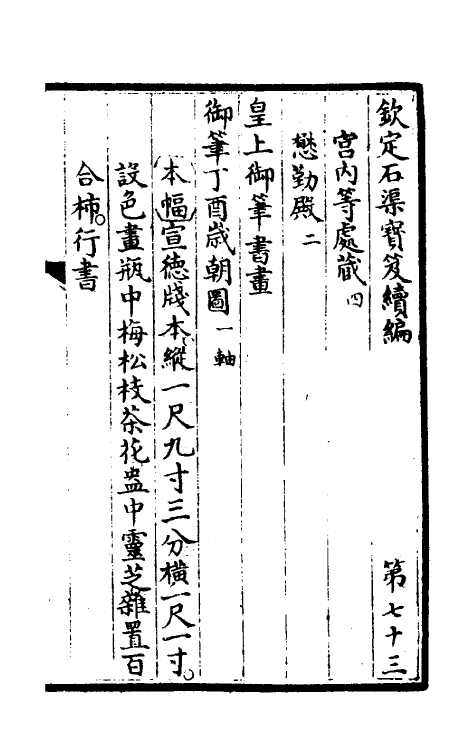 欽定石渠寶笈續編　第七十三
宮內等處藏四
懋勤殿二
皇上御筆書畫
御筆丁酉歲朝圖一軸
本幅宣德牋本縱一尺九寸三分橫一尺一寸。
設色畫瓶中梅松枝茶花盎中靈芝雜置百
合柿。行書